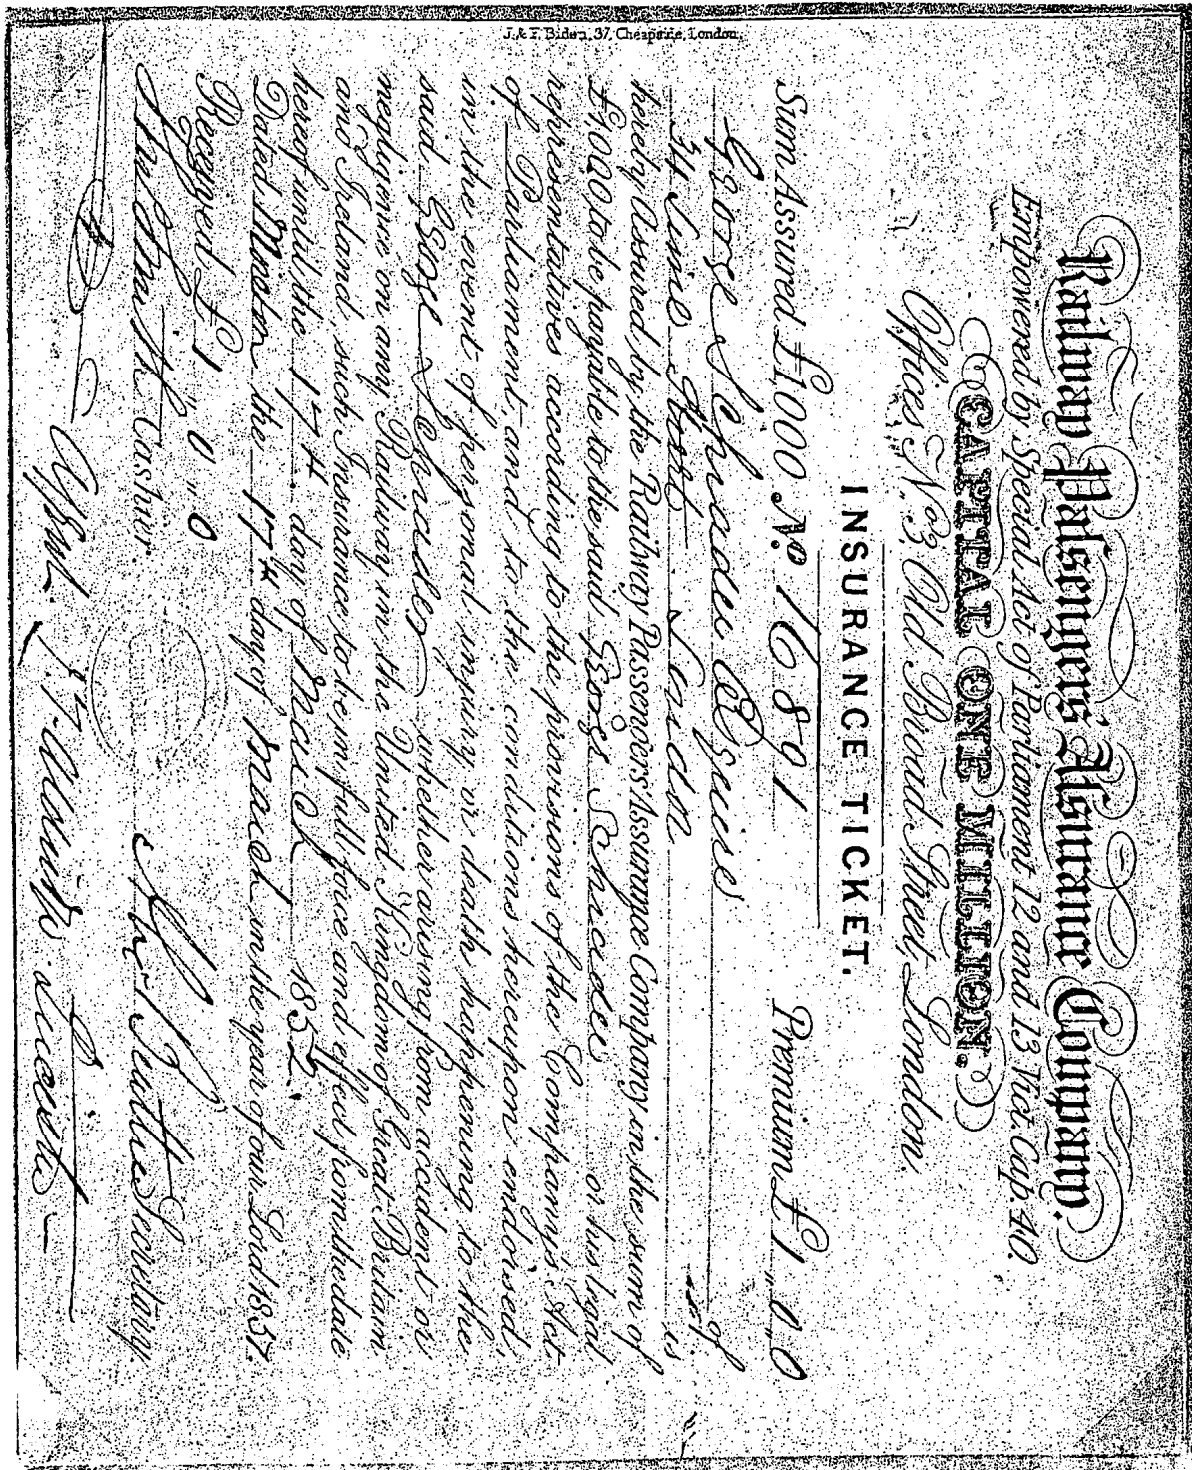 J. & F. Biden, 37, Cheapside, London.
Railway Passengers' Assurance Company.
Empowered by Special Act of Parliament 12 and 13 Vict. Cap. 40.
CAPITAL ONE MILLION.
Offices, No. 3, Old Broad Street, London.
INSURANCE TICKET.
Sum Assured £1000 No. 16891 Premium £1 " 0 " 0
George Schnadee of
34 Street London is
hereby assured by the Railway Passengers Assurance Company in the sum of
£1000 to be payable to the said George Schnadee or his legal
representatives according to the provisions of the Company's Act
of Parliament, and to the conditions hereupon endorsed,
in the event of personal injury or death happening to the
said George Schnadee whether arising from accident or
negligence on any Railway in the United Kingdom of Great Britain
and Ireland, such Insurance to be in full force and effect from the date
hereof until the 17th day of March 1852.
Dated, the 17th day of March in the year of our Lord 1851.
Received £1 " 0 " 0
Cashier. Secretary.
Agent